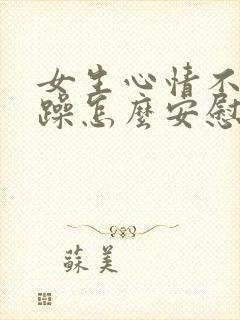 女生心情不
躁怎麼安慰
蘇美